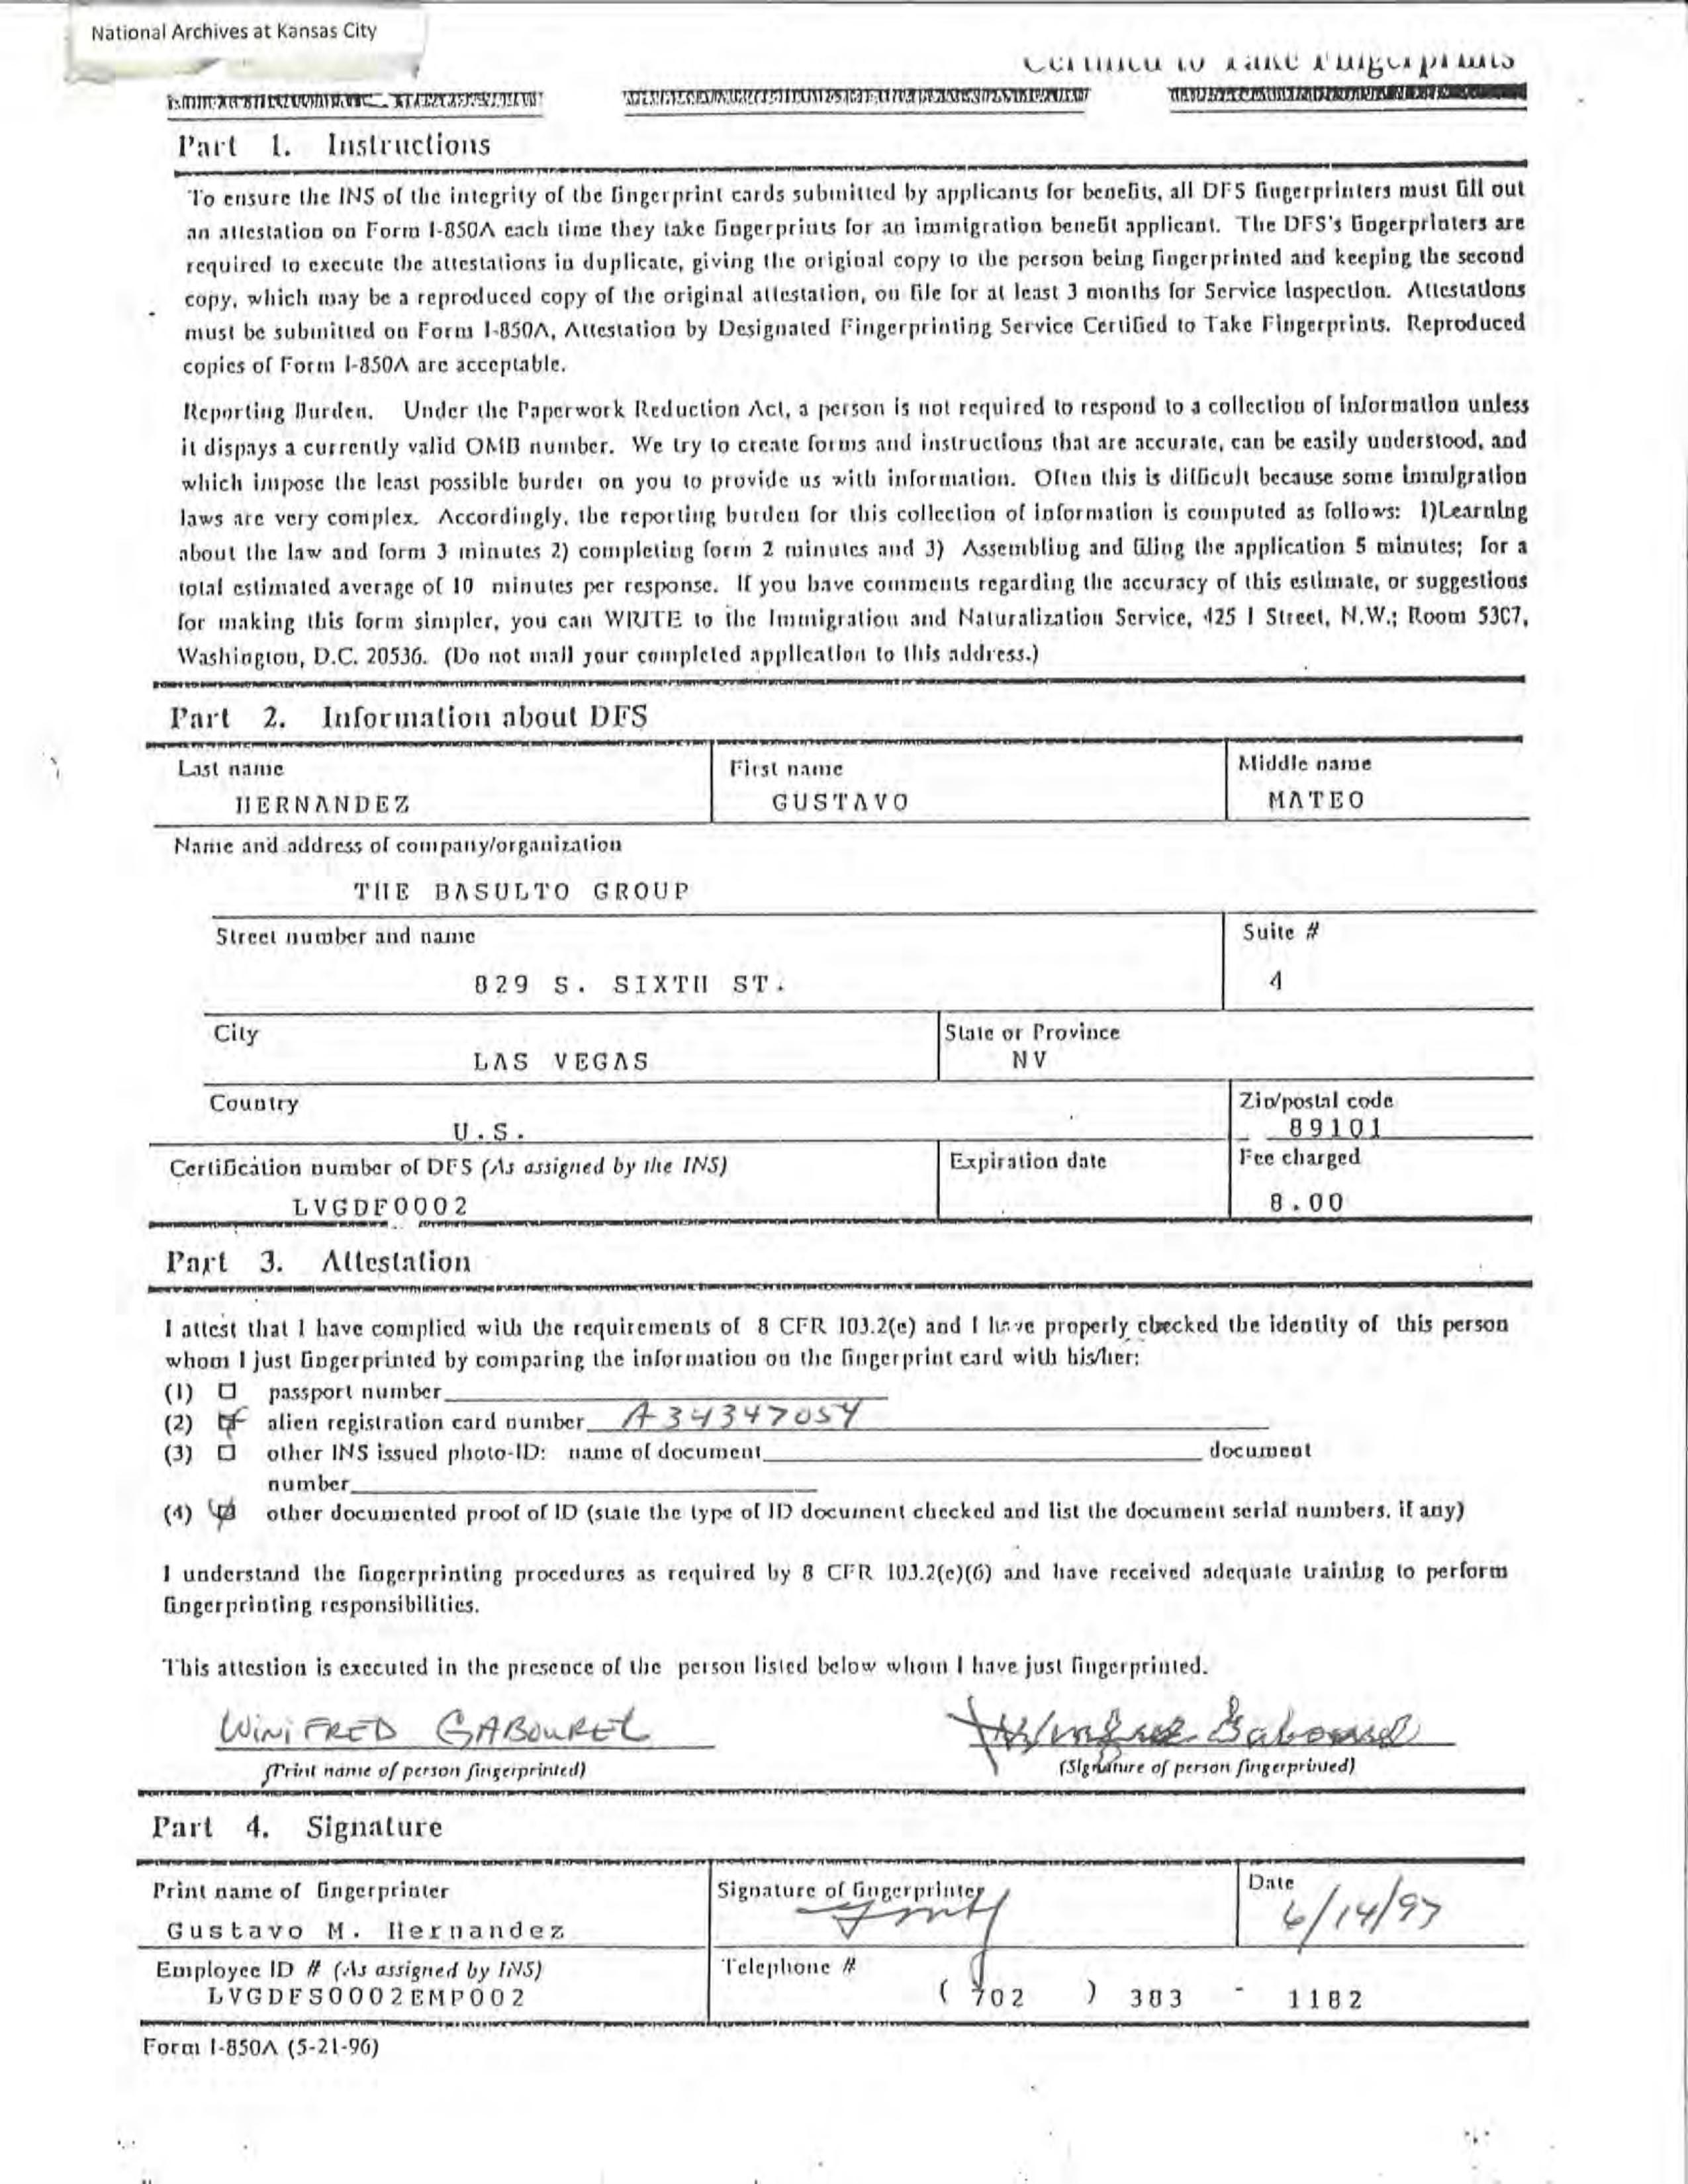 National Archives at Kansas City
Certified to Take Fingerprints
Part 1. Instructions
To ensure the INS of the integrity of the fingerprint cards submitted by applicants for benefits, all DFS fingerprinters must fill out
an attestation on Form I-850A each time they take fingerprints for an immigration benefit applicant. The DFS's fingerprinters are
required to execute the attestations in duplicate, giving the original copy to the person being fingerprinted and keeping the second
copy, which may be a reproduced copy of the original attestation, on file for at least 3 months for Service Inspection. Attestations
must be submitted on Form I-850A, Attestation by Designated Fingerprinting Service Certified to Take Fingerprints. Reproduced
copies of Form I-850A are acceptable.
Reporting Burden. Under the Paperwork Reduction Act, a person is not required to respond to a collection of information unless
it dispays a currently valid OMB number. We try to create forms and instructions that are accurate, can be easily understood, and
which impose the least possible burder on you to provide us with information. Often this is difficult because some immigration
laws are very complex. Accordingly, the reporting burden for this collection of information is computed as follows: 1)Learning
about the law and form 3 minutes 2) completing form 2 minutes and 3) Assembling and filing the application 5 minutes; for a
total estimated average of 10 minutes per response. If you have comments regarding the accuracy of this estimate, or suggestions
for making this form simpler, you can WRITE to the Immigration and Naturalization Service, 425 I Street, N.W.; Room 5307,
Washington, D.C. 20536. (Do not mail your completed application to this address.)
Part 2. Information about DFS
Last name First name Middle name
HERNANDEZ GUSTAVO MATEO
Name and address of company/organization
THE BASULTO GROUP
Street number and name Suite #
829 S. SIXTH ST. 4
City State or Province
LAS VEGAS NV
Country Zip/postal code
U.S. 89101
Certification number of DFS (As assigned by the INS) Expiration date Fee charged
LVGDF0002 8.00
Part 3. Attestation
I attest that I have complied with the requirements of 8 CFR 103.2(e) and I have properly checked the identity of this person
whom I just fingerprinted by comparing the information on the fingerprint card with his/her:
(1) passport number
(2) alien registration card number A34347054
(3) other INS issued photo-ID: name of document document
number
(4) other documented proof of ID (state the type of ID document checked and list the document serial numbers, if any)
I understand the fingerprinting procedures as required by 8 CFR 103.2(e)(6) and have received adequate training to perform
fingerprinting responsibilities.
This attestion is executed in the presence of the person listed below whom I have just fingerprinted.
WINIFRED GABOUREL Winifred Gabourel
(Print name of person fingerprinted) (Signature of person fingerprinted)
Part 4. Signature
Print name of fingerprinter Signature of fingerprinter Date
Gustavo M. Hernandez 6/14/97
Employee ID # (As assigned by INS) Telephone #
LVGDFS0002EMP002 (702) 383 - 1182
Form I-850A (5-21-96)